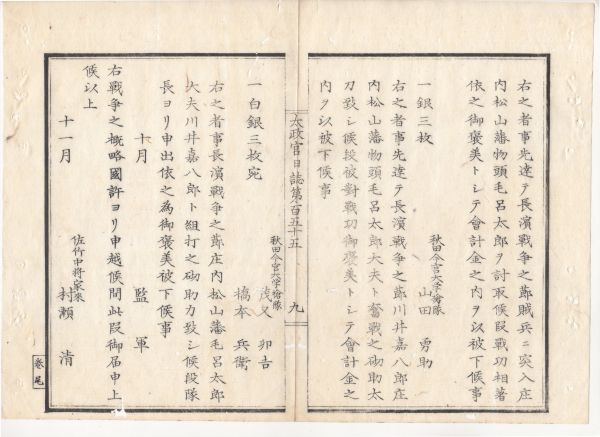 右之者事先達テ長濱戰爭之節賊兵ニ突入庄
内松山藩物頭毛呂太郎ヲ討取候段戰功相著
依之御褒美トシテ會計金之内ヲ以被下候事
秋田今宮大学給隊
山田 勇助
一銀三枚
右之者事先達テ長濱戰爭之節川井嘉八郎庄
内松山藩物頭毛呂太郎大夫ト奮戰之砌助太
刀致シ候段被對戰功御褒美トシテ會計金之
内ヲ以被下候事
太政官日誌第百五十五 九
秋田今宮大学給隊
茂又 卯吉
橋本 兵衛
一白銀三枚宛
右之者事長濱戰爭之節庄内松山藩毛呂太郎
大夫川井嘉八郎ト組打之砌助力致シ候段隊
長ヨリ申出依之為御褒美被下候事
十月 監軍
右戰爭之概略國許ヨリ申越候間此段御届申上
候以上
十一月
佐竹中将家来
村瀬 清
巻尾